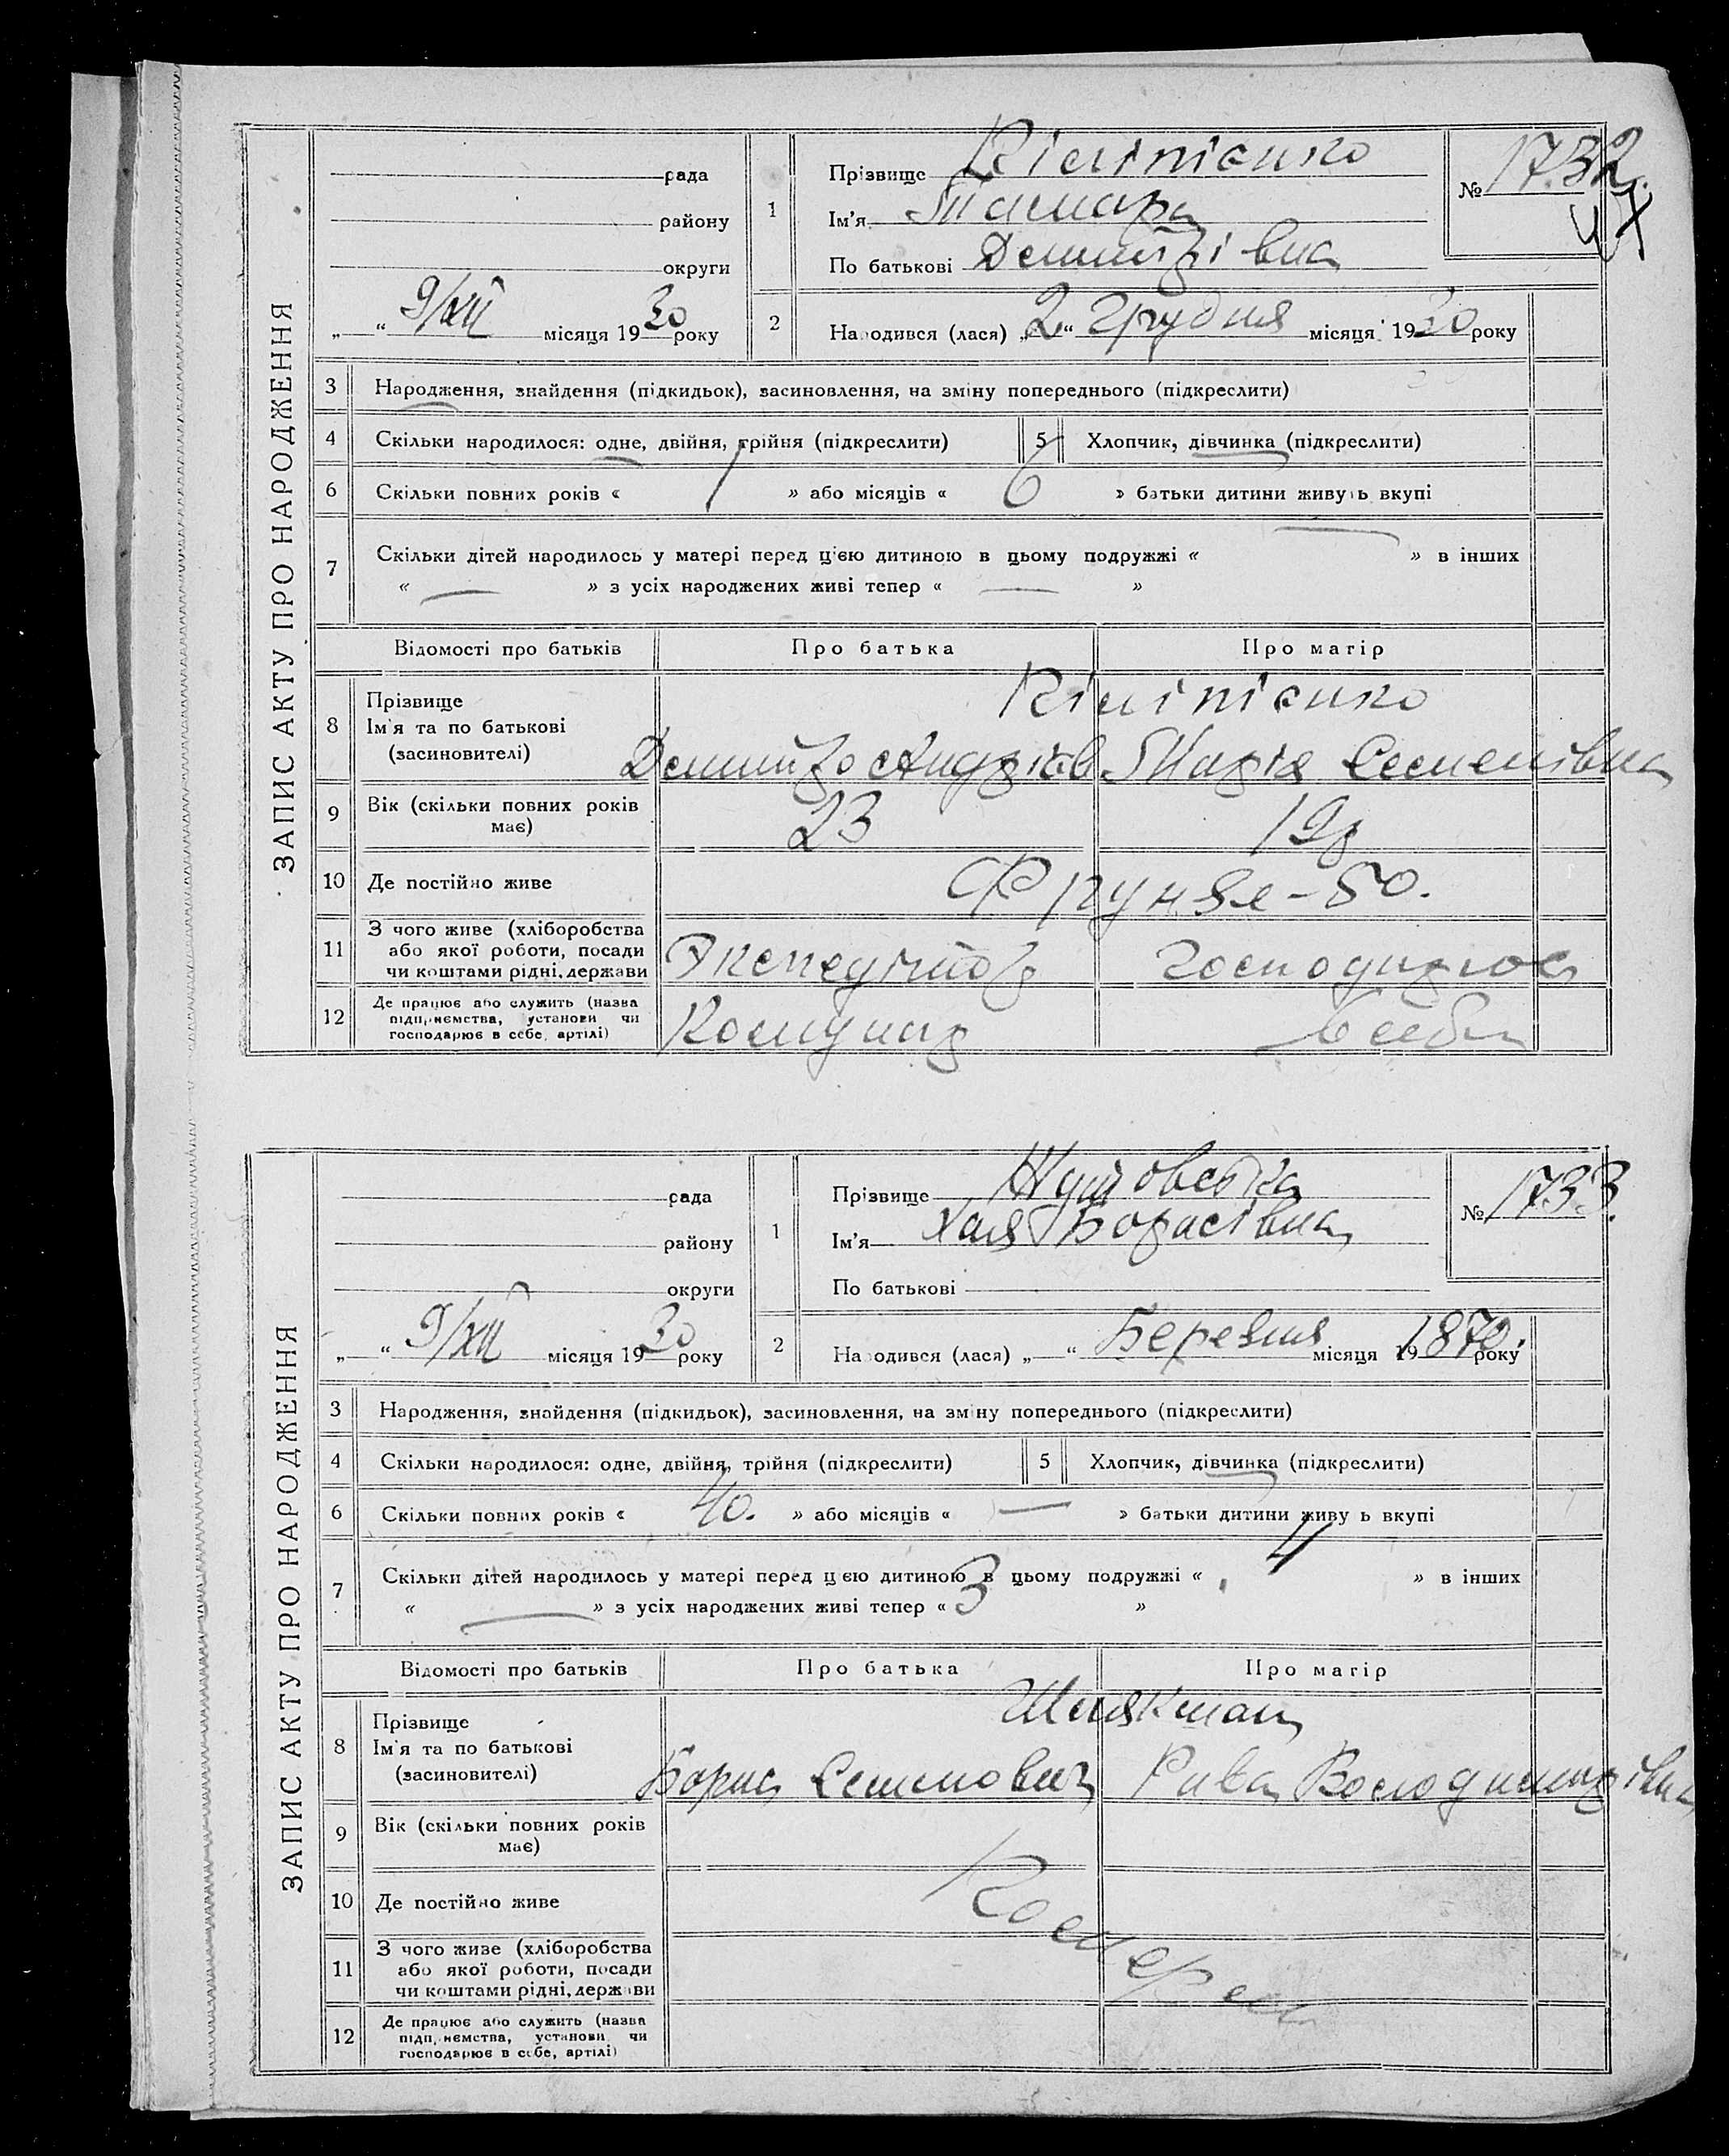 ЗАПИС АКТУ ПРО НАРОДЖЕННЯ
рада
району
округи
„ “ 9/XII місяця 1930 року
1
Прізвище
Ім'я Тамара
По батькові Дмитрівна
№ 1732.
47
2
Народився (лася) „2“ Грудня місяця 1930 року
3 Народження, знайдення (підкидьок), засиновлення, на зміну попереднього (підкреслити)
4 Скільки народилося: одне, двійня, трійня (підкреслити) 5 Хлопчик, дівчинка (підкреслити)
6 Скільки повних років « 1 » або місяців « 6 » батьки дитини живуть вкупі
7 Скільки дітей народилось у матері перед цією дитиною в цьому подружжі « — » в інших
« — » з усіх народжених живі тепер « — »
Відомості про батьків Про батька Про матір
8 Прізвище
Ім'я та по батькові
(засиновителі)
Дмитро Андріїв Марія Семенівна
9 Вік (скільки повних років має) 23 19р
10 Де постійно живе Фрунзе-50.
11 З чого живе (хліборобства або якої роботи, посади чи коштами рідні, держави Экспедитор
12 Де працює або служить (назва підприємства, установи чи господарює в себе, артілі) Комунар в себе
ЗАПИС АКТУ ПРО НАРОДЖЕННЯ
рада
району
округи
„ “ 9/XII місяця 1930 року
1
Прізвище
Ім'я Хая Борисівна
По батькові
№ 1733.
2
Народився (лася) „ “ Березня місяця 1870. року
3 Народження, знайдення (підкидьок), засиновлення, на зміну попереднього (підкреслити)
4 Скільки народилося: одне, двійня, трійня (підкреслити) 5 Хлопчик, дівчинка (підкреслити)
6 Скільки повних років « 40. » або місяців « — » батьки дитини живуть вкупі
7 Скільки дітей народилось у матері перед цією дитиною в цьому подружжі « 4 » в інших
« — » з усіх народжених живі тепер « 3 »
Відомості про батьків Про батька Про матір
8 Прізвище
Ім'я та по батькові
(засиновителі)
Борис Семенович Рива Володимирівна
9 Вік (скільки повних років має)
10 Де постійно живе
11 З чого живе (хліборобства або якої роботи, посади чи коштами рідні, держави
12 Де працює або служить (назва підприємства, установи чи господарює в себе, артілі)
Померли